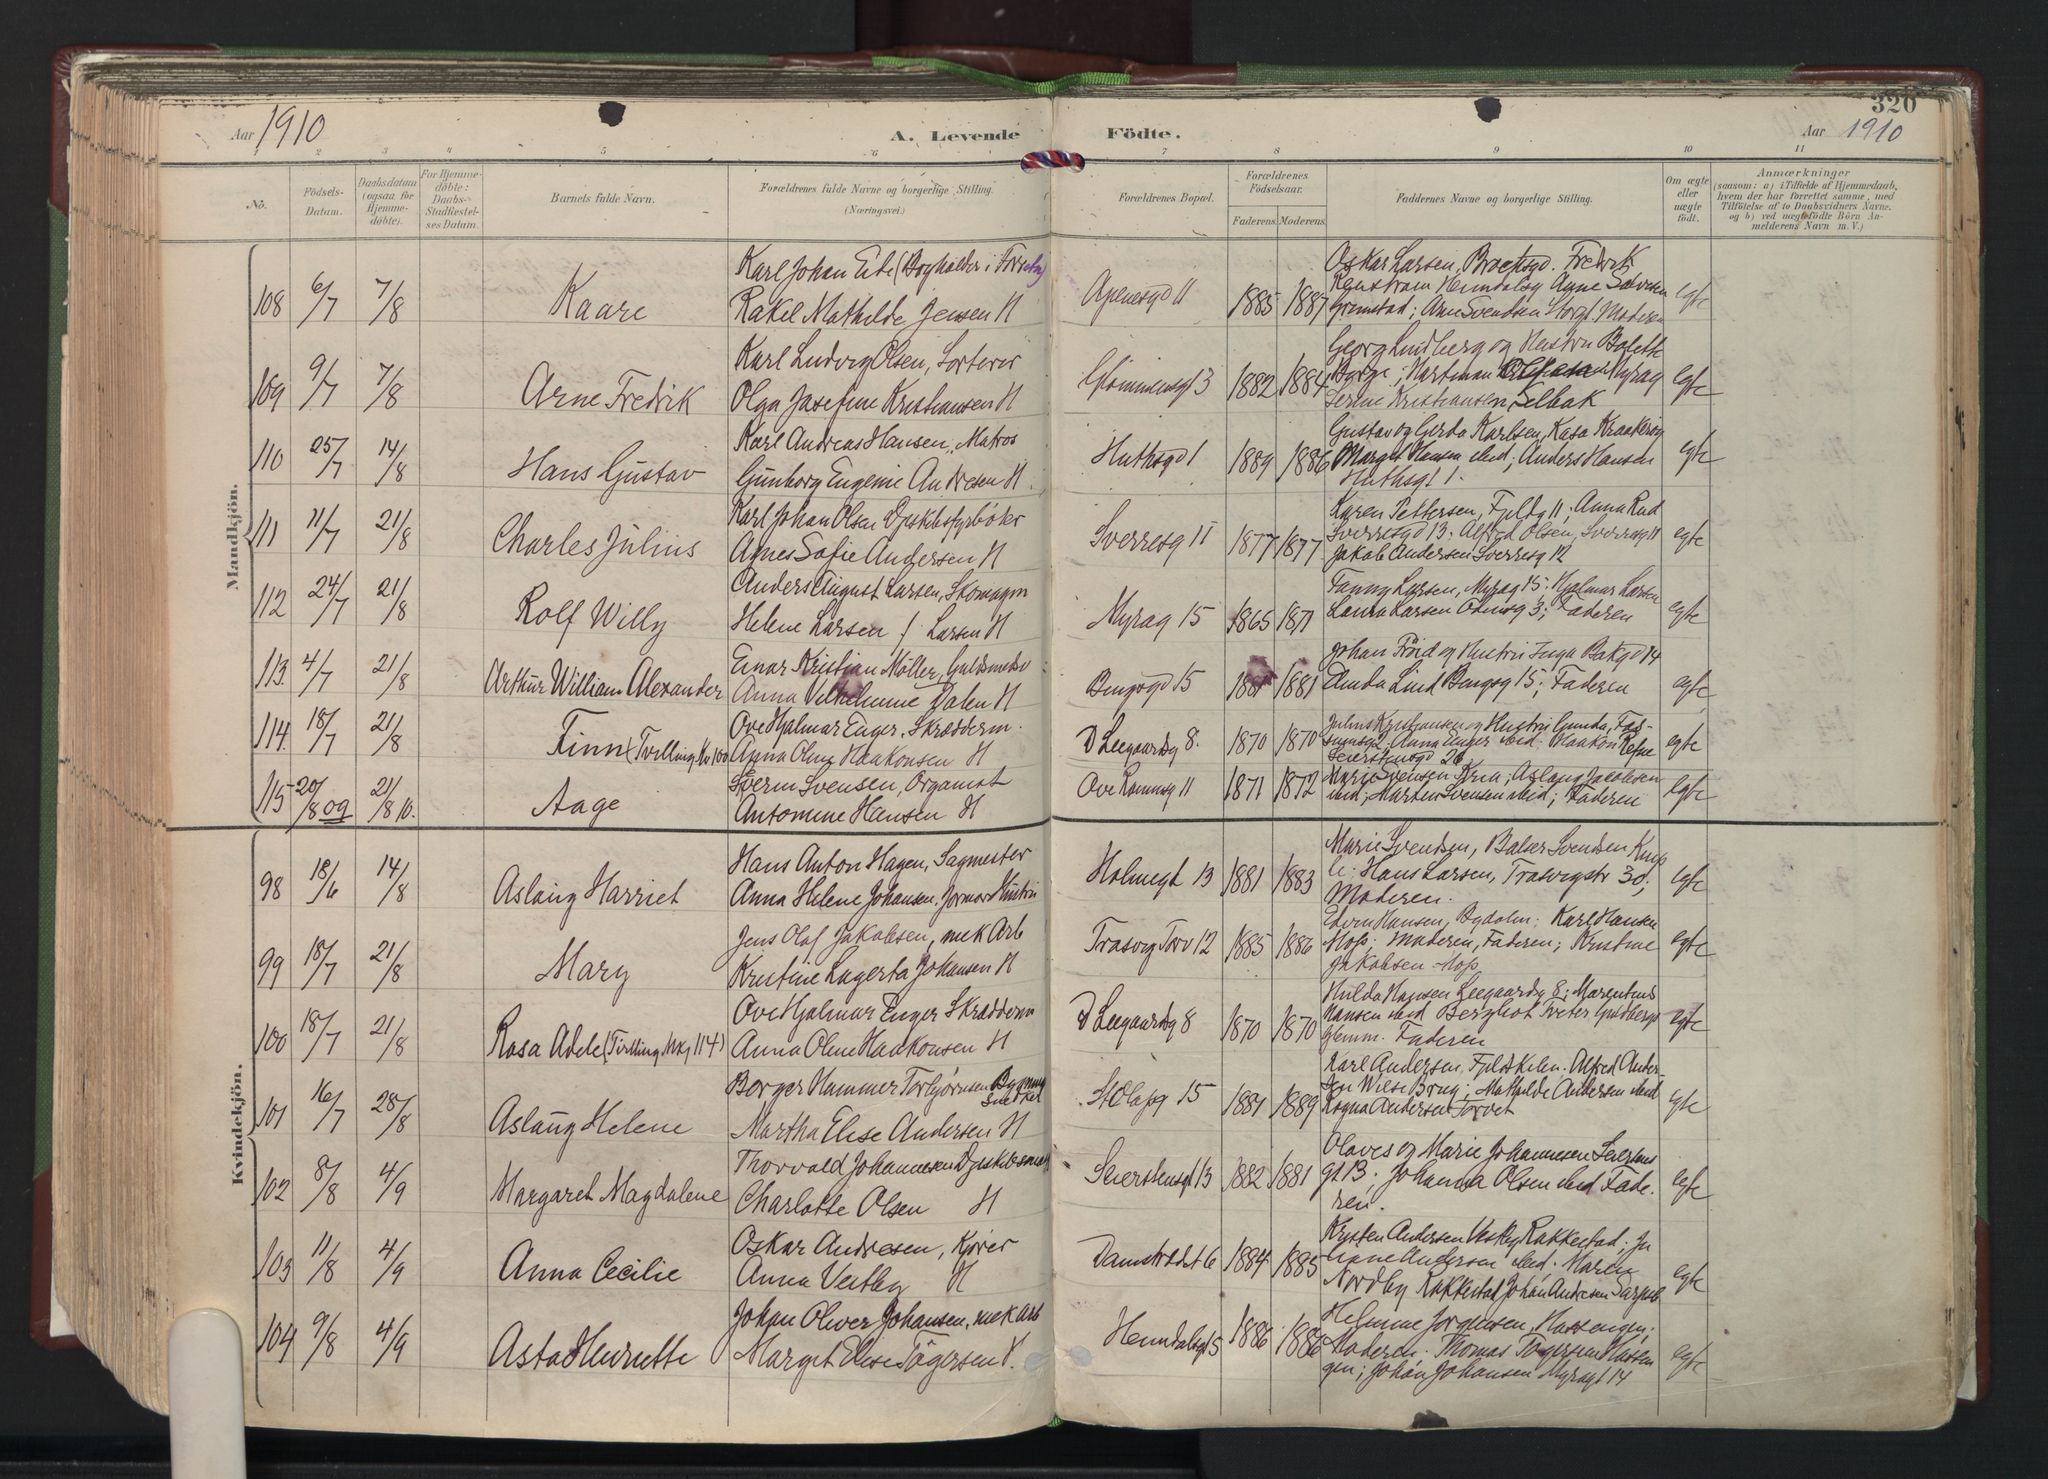 320
Aar 1910
A. Levende Födte.
Aar 1910
1 2 3 4 5 6 7 8 9 10 11
No.
Födsels-Datum.
Daabsdatum (ogsaa for Hjemme-döbte).
For Hjemme-döbte: Daabs-Stadfæstel-ses Datum.
Barnets fulde Navn.
Forældrenes fulde Navne og borgerlige Stilling.
(Næringsvei.)
Forældrenes Bopæl.
Forældrenes Födselsaar.
Faderens. Moderens.
Faddernes Navne og borgerlige Stilling.
Om ægte eller uægte födt.
Anmærkninger
(saasom: a) i Tilfælde af Hjemmedaab,
hvem der har forrettet samme, med
Tilföielse af to Daabsvidners Navne.
og b) ved uægtefödte Börn An-
melderens Navn m. V.)
Mandkjön.
108 6/7 7/8 Kaare
Karl Johan (Bogholder i
Rakel Mathilde Jensen H
Apenesgd 11 1885 1887
Oskar Larsen, Brochsgd. Fredrik
Grimstad; Svendsen Storgt Moderen
egte
109 9/7 7/8 Arne Fredrik
Karl Ludvig Olsen, Sorterer
Olga Josefine Kristiansen H
Glommensgt 3 1882 1884
Georg Lindberg og Hustru Bolette
Borge; Hartman Myrag
Serine Kristiansen, Selbak
egte
110 25/7 14/8 Hans Gustav
Karl Andreas Hansen, Matros
Gunborg Eugenie Andresen H.
Huthsgd 1 1889 1886
Gustav og Gerda Karlsen, Kasa Kraakerøy
Margit Hansen ibid; Anders Hansen
Huthsgt 1.
egte
111 11/7 21/8 Charles Julius
Karl Johan Olsen Dpskibsfyrbøter
Agnes Sofie Andersen H
Sverresg 11 1877 1877
Karen Pettersen, Fjeldg 11; Anna Rud
Sverresgd 13; Alfred Olsen, Sverresg 11
Jakob Andersen Sverresg 12
egte
112 24/7 21/8 Rolf Willy
Anders August Larsen, Skomagm
Helene Larsen f. Larsen H
Myrag 15 1865 1871
Fanny Larsen, Myrag 15; Hjalmar Larsen
Laura Larsen Odinsg 3; Faderen
egte
113. 4/7 21/8 Arthur William Alexander
Einar Kristian Møller, Guldsmedsv
Anna Vilhelmine Dalen H
Bingsgd 15 1881 1881
Johan Frøid og Hustru Inga Bakgd 14
Lind Bingsg 15; Faderen
egte
114. 18/7 21/8 Finn (Tvilling Kv 100
Ove Hjalmar Enger. Skrædderm.
Anna Oline Haakonsen H
D Leegaardsg 8. 1870 1870
Julius Kristiansen og Hustru Gunda,
Anna Enger ibid. Haakon
Seierstensgd 26
egte
115 20/8 09 21/8 10. Aage
Sverin Svensen, Organist
Antomine Hansen H
Ove Rammsg 11 1871 1872
Marie Svensen Kria; Aslaug Jacobsen
ibid; Marten Svensen ibid; Faderen
egte
Kvindekjön.
98 18/6 14/8 Aslaug Harriet
Hans Anton Hagen, Sagmester
Anna Helene Johansen. Jormord Hustru
Holmegt 13 1881 1883
Marie Svendsen, Balser Svendsen
Hans Larsen, Trosvigstr 30;
Moderen.
egte
99 18/7 21/8 Mary
Jens Olaf Jakobsen, mek Arb
Kristine Lagerta Johansen H
Trosvig Torv 12 1885 1886
Edvin Hansen, Bydalen; Karl Hansen
Moss; Moderen, Faderen; Kristine
Jakobsen Moss
egte
100 18/7 21/8 Rosa Adele (Tvilling Mkj 114)
Ove Hjalmar Enger Skrædderm
Anna Oline Haakonsen H
D Leegaardsg 8 1870 1870
Hulda Hansen Leegaardsg 8; Marentius
Hansen ibid Bergliot Tveter Guldbergs
Glemm. Faderen
egte
101 16/7 28/8 Aslaug Helene
Borger Hammer Torbjørnsen Bygnings
Snedker
Martha Elise Andersen H
St Olafsg 15 1881 1889
Karl Andersen, Fjeldskilen. Alfred Ander-
sen Wiese Brug; Mathilde Andersen ibid
Ragna Andersen Torvet
egte
102 8/8 4/9 Margaret Magdalene
Thorvald Johannesen Dpskibsmat
Charlotte Olsen H
Seierstensgt 13 1882 1881
Olaves og Marie Johannesen Seierstens
gt 13; Johanna Olsen ibid Fade-
ren.
egte
103 11/8 4/9 Anna Cecilie
Oskar Andresen, Kjører
Anna Vestby H
Damstredet 6 1884 1885
Kristen Andersen Vesby Rakkestad; Ju
liane Andersen ibid. Maren
Nordby Rakkestad Johan Andresen Sarpsb
egte
104 9/8 4/9 Asta Henriette
Johan Oliver Johansen, mek Arb
Marget Elise Tøgersen H.
Henndalsgt 5 1886 1886
Helmine Jørgensen, Hassengen;
Moderen. Thomas Tøgersen Hassen
gen; Johan Johansen Myragt 14
egte